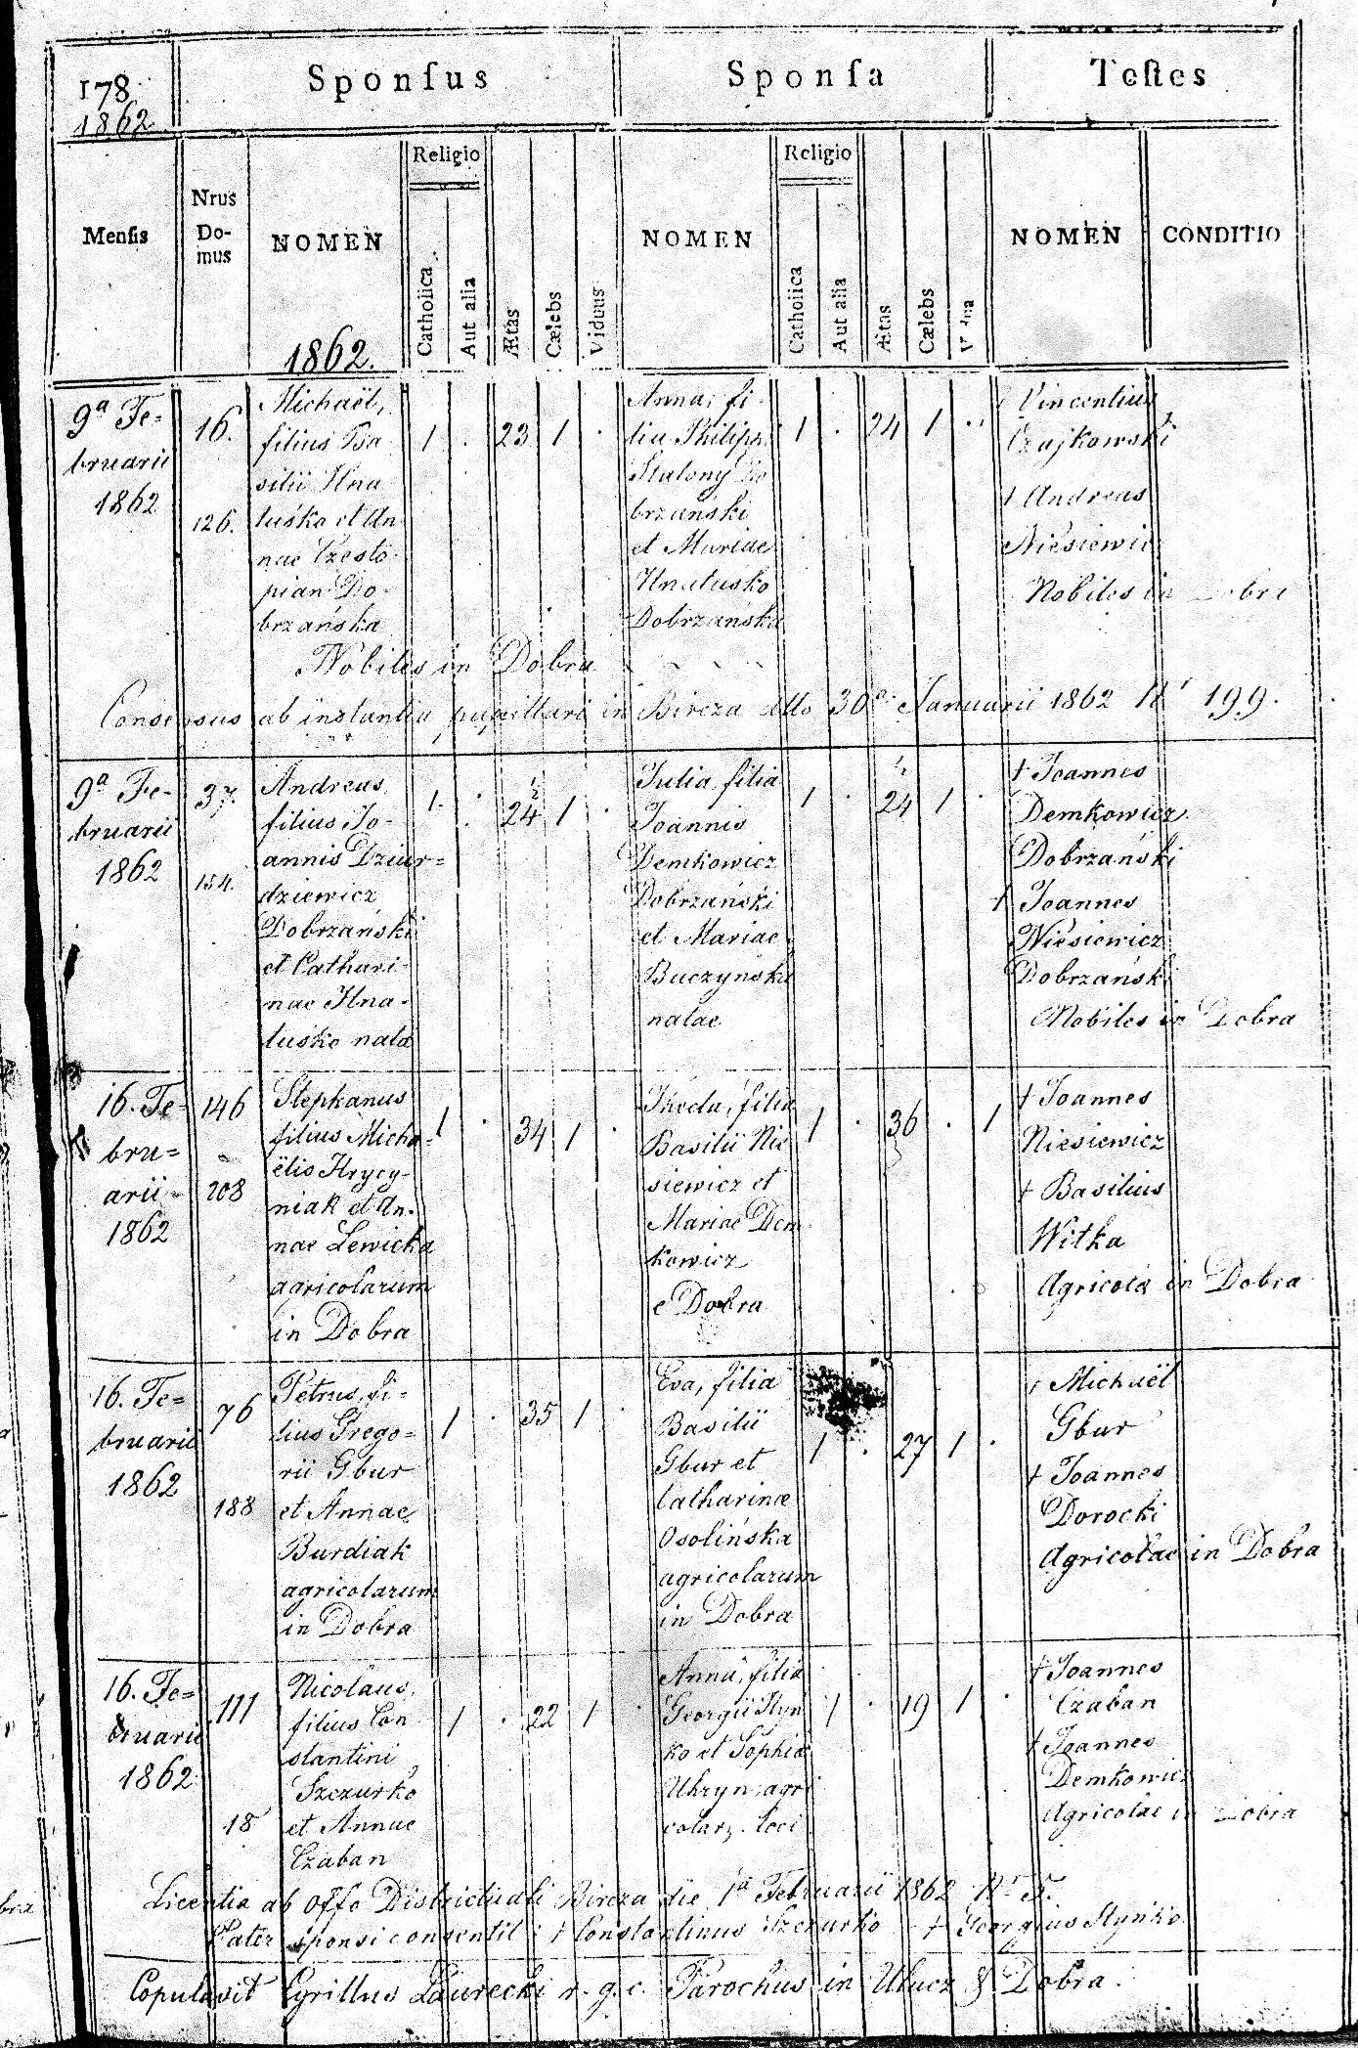 178
1862
Sponſus
Sponſa
Teſtes
Menſis
Nrus
Do-
mus
NOMEN
1862.
Religio
Catholica
Aut alia
Ætas
Cælebs
Viduus
NOMEN
Religio
Catholica
Aut alia
Ætas
Cælebs
NOMEN
CONDITIO
9a Fe-
bruarii
1862
16.
126.
Michaël,
filius Ba
silii Hna
tuśko et An
nae Czesto
pian Do-
brzańska
1 . 23 1 .
Anna, fi-
lia Philippi
Stalony Do
brzański
et Mariae
Hnatusko
Dobrzańska
1 . 24 1 .
Vincentius
Czajkowski
† Andreas
Niesiewic
Nobiles in Dobra
Nobiles in Dobra
Consensus ab instantia pupillari in Bircza dtto 30a Januarii 1862 Nr 199.
9a Fe-
bruarii
1862
37.
154.
Andreas,
filius Jo-
annis Dziur=
dziewicz
Dobrzański
et Cathari-
nae Hna-
tuśko nata
1. . 24 1/2 1 .
Julia filia
Joannis
Demkowicz
Dobrzański
et Mariae
Buczyńska
natae
1 . 24 1/2 1 .
† Joannes
Demkowicz
Dobrzański
† Joannes
Niesiewicz
Dobrzański
Nobiles in Dobra
16. Fe-
bru=
arii
1862
146
208
Stephanus
filius Micha=
ëlis Hrycy-
niak et An-
nae Lewicka
agricolarum
in Dobra
1 . 34 1 .
Theda, filia
Basilii Nie
siewicz et
Mariae Dem
kowicz
e Dobra
1 . 36 . 1
† Joannes
Niesiewicz
† Basilius
Witka
Agricolae in Dobra
16. Fe=
bruarii
1862
76
188
Petrus, fi-
lius Grego=
rii Gbur
et Annae
Burdiak
agricolarum
in Dobra
1 . 35 1 .
Eva, filia
Basilii
Gbur et
Catharinæ
Osolińska
agricolarum
in Dobra
1 . 27 1 .
† Michaël
Gbur
† Joannes
Dorocki
Agricolae in Dobra
16. Fe=
bruarii
1862
111
18
Nicolaus,
filius Con
stantini
Szczurko
et Annae
Czaban
1 . 22 1
Anna, filia
Georgii Hyn
ko et Sophiæ
Uhryn agri
colarz. loci
1 . 19 1 .
† Joannes
Czaban
† Joannes
Demkowicz
Agricolae in Dobra
Licentia ab Offo Districtuali Bircza die 1a Februarii 1862 Nr 5.
Pater sponsi consentit: † Constantinus Szczurko † Georgius Hynko
Copulavit Cyrillus Laurecki r. g. c. Parochus in Ulucz & Dobra.